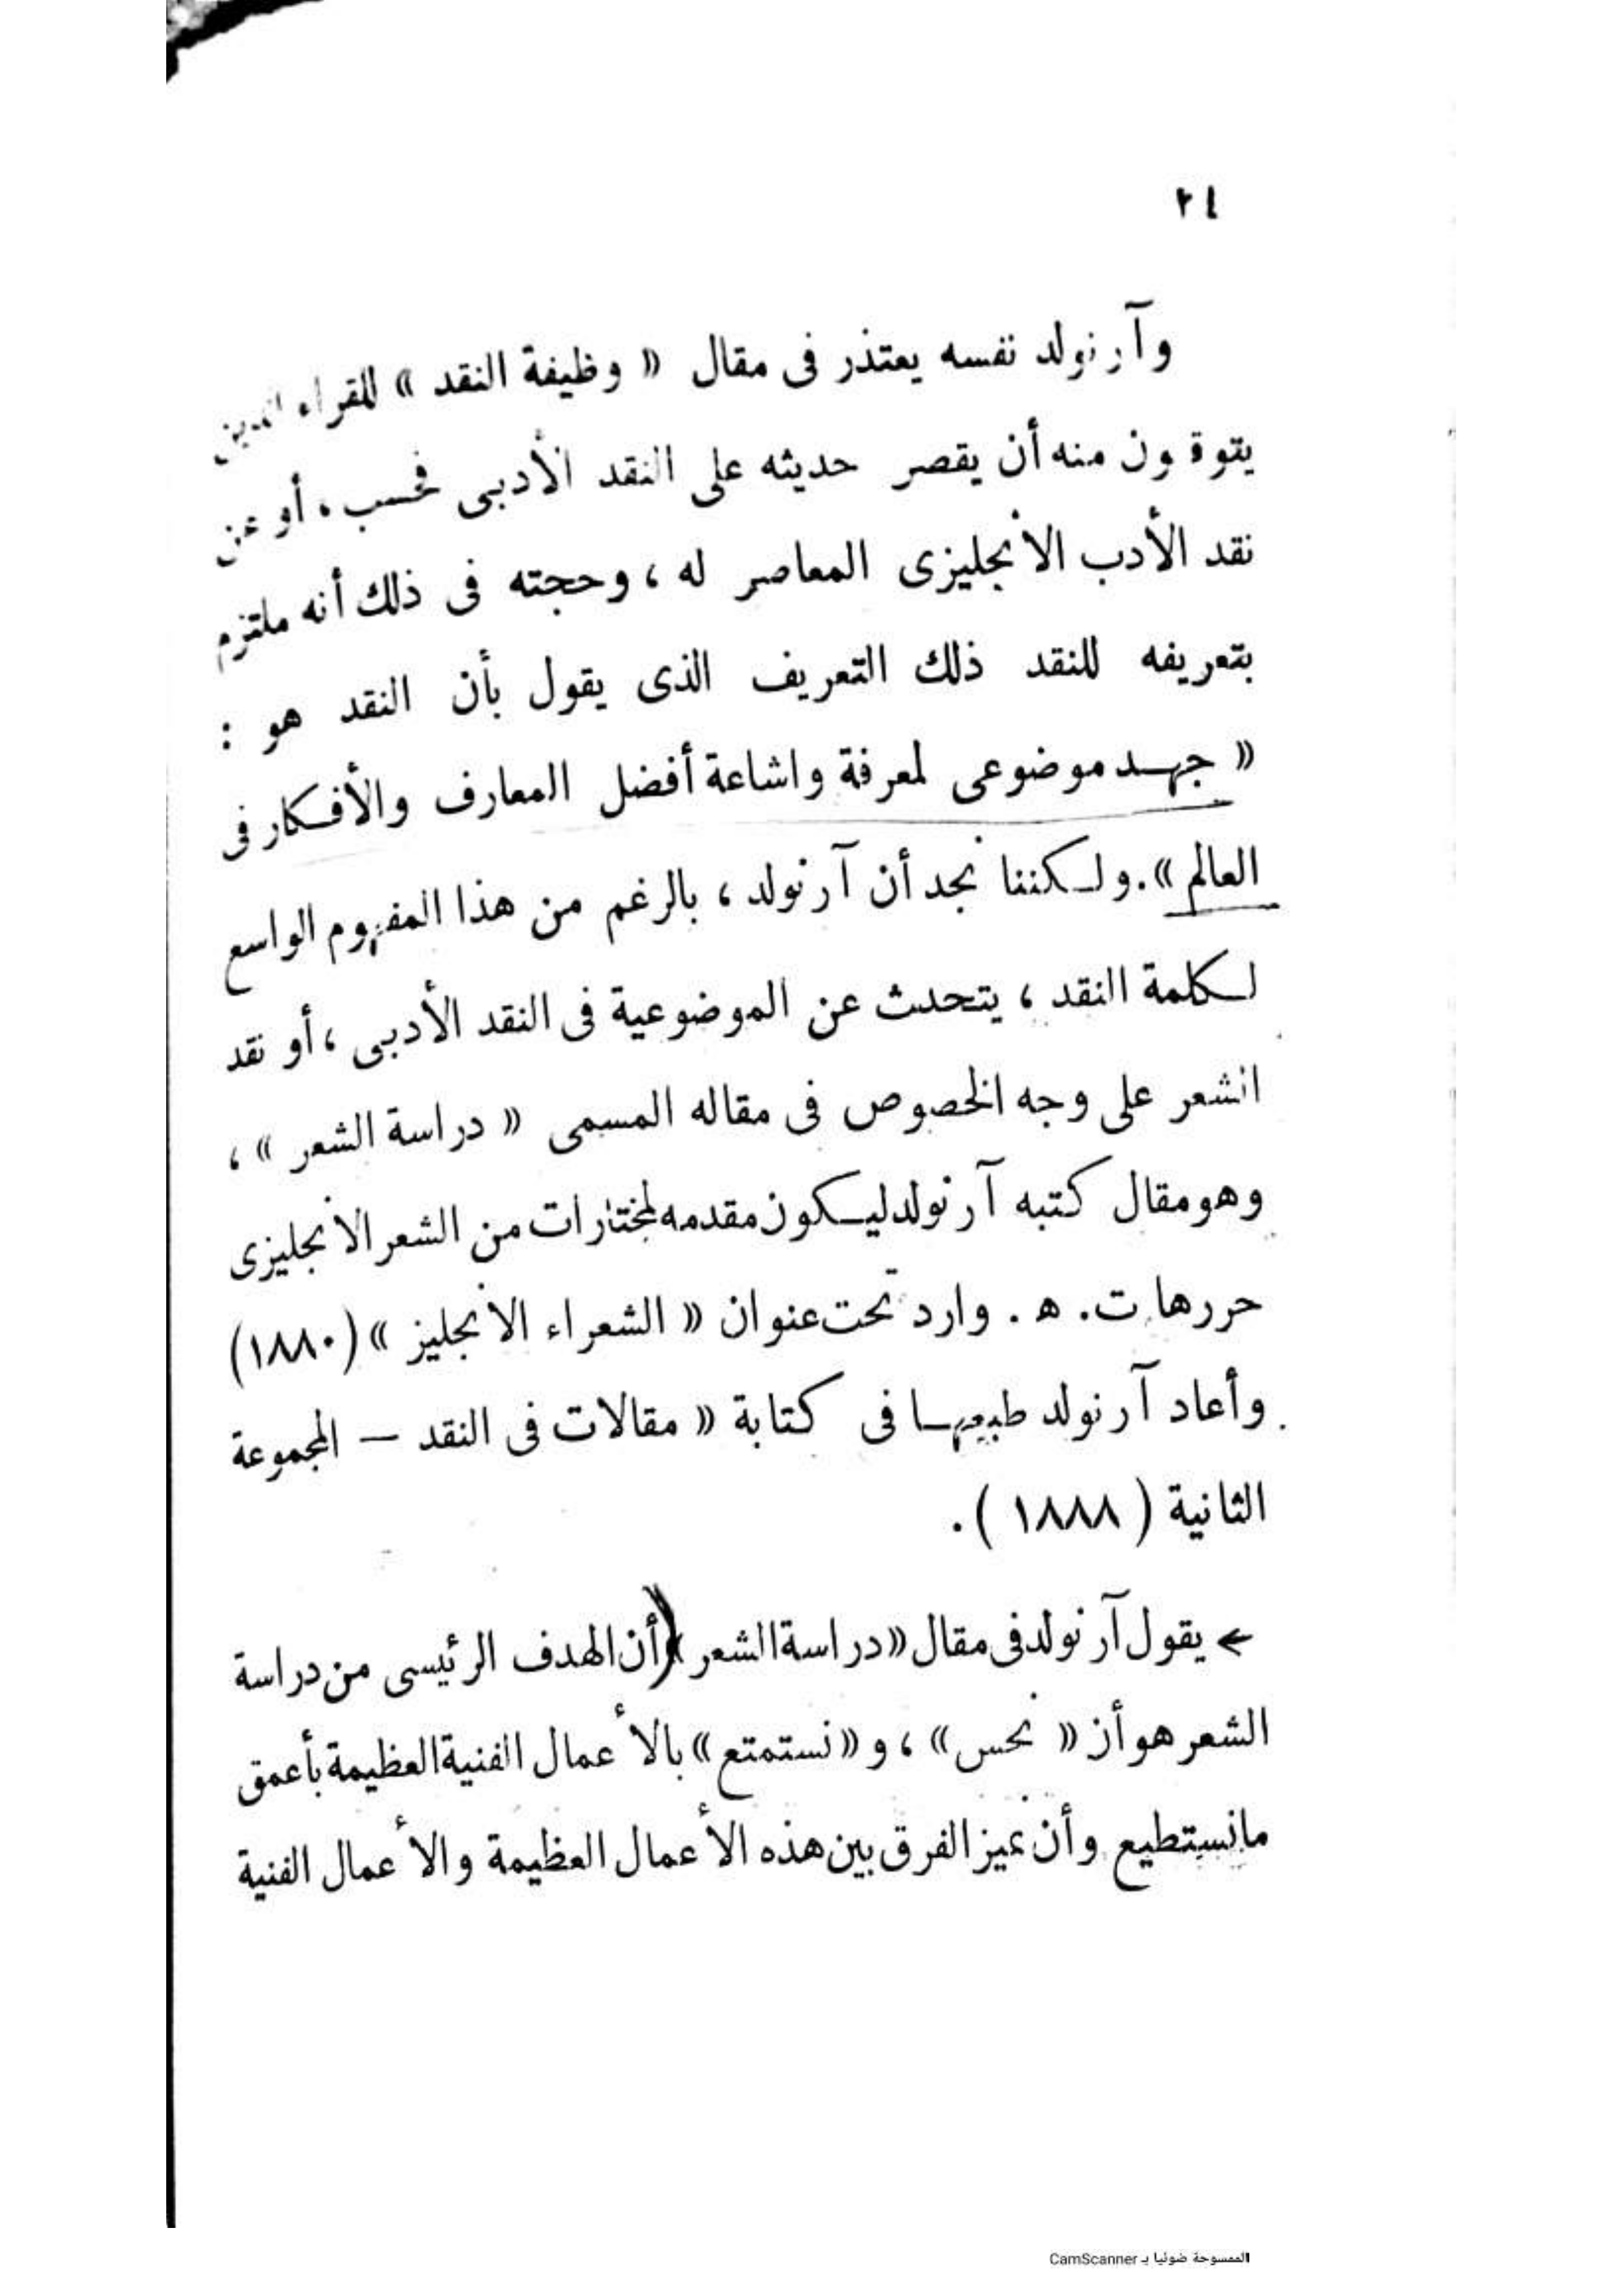 ٢٤
وآرنولد نفسه يعتذر فى مقال « وظيفة النقد » للقراء الذين
يتوقون منه أن يقصر حديثه على النقد الأدبى فحسب ، أو عن
نقد الأدب الانجليزى المعاصر له ، وحجته فى ذلك أنه ملتزم
بتعريفه للنقد ذلك التعريف الذى يقول بأن النقد هو :
« جهد موضوعى لمعرفة واشاعة أفضل المعارف والأفكار فى
العالم » . ولكننا نجد أن آرنولد ، بالرغم من هذا المفهوم الواسع
لكلمة النقد ، يتحدث عن الموضوعية فى النقد الأدبى ، أو نقد
الشعر على وجه الخصوص فى مقاله المسمى « دراسة الشعر » ،
وهو مقال كتبه آرنولد ليكون مقدمه لمختارات من الشعر الانجليزى
حررها ت. ه . وارد تحت عنوان « الشعراء الانجليز » (١٨٨٠)
وأعاد آرنولد طبعها فى كتابة « مقالات فى النقد — المجموعة
الثانية ( ١٨٨٨ ) .
← يقول آرنولد فى مقال « دراسة الشعر » (أن الهدف الرئيسى من دراسة
الشعر هو أن « نحس » ، و « نستمتع » بالأعمال الفنية العظيمة بأعمق
مانستطيع وأن نميز الفرق بين هذه الأعمال العظيمة والأعمال الفنية
الممسوحة ضوئيا بـ CamScanner